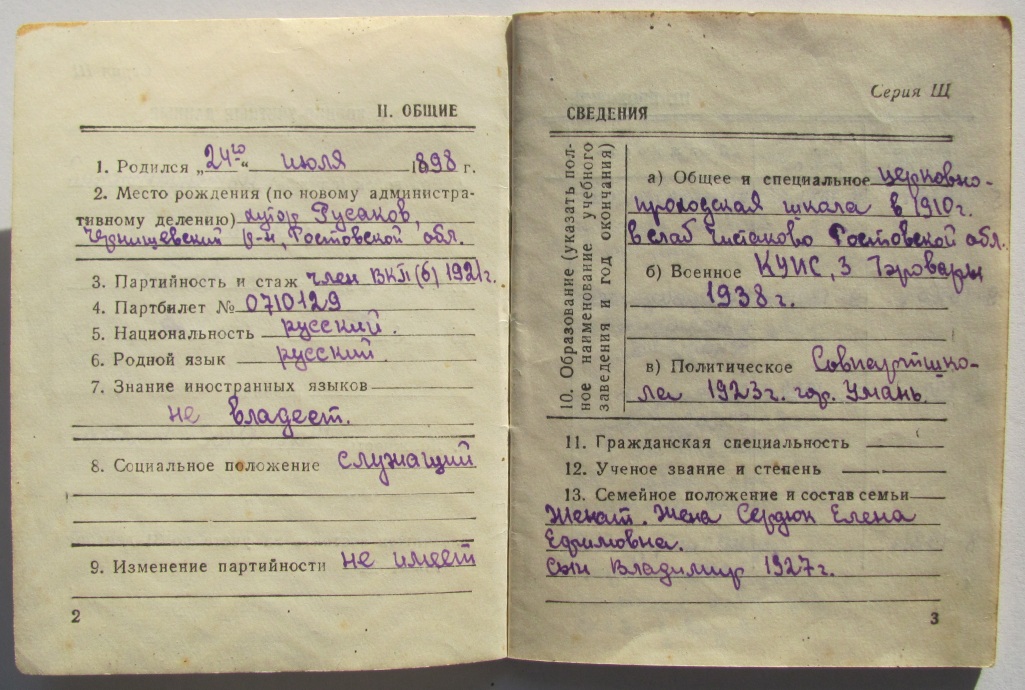 II. ОБЩИЕ
1. Родился „24го“ июля 1898 г.
2. Место рождения (по новому администра-
тивному делению) хутор Русаков,
Чернишевский р-н, Ростовской обл.
3. Партийность и стаж член ВКП(б) 1921г.
4. Партбилет № 0710129
5. Национальность русский.
6. Родной язык русский.
7. Знание иностранных языков
не владеет.
8. Социальное положение служащий
9. Изменение партийности не имеет
2
Серия Щ
СВЕДЕНИЯ
10. Образование (указать пол-
ное наименование учебного
заведения и год окончания)
а) Общее и специальное церковно-
приходская школа в 1910г.
в слоб Чистаково Ростовской обл.
б) Военное КУИС, г.
1938г.
в) Политическое Совпартшко-
ла 1923г. гор. Умань.
11. Гражданская специальность
12. Ученое звание и степень
13. Семейное положение и состав семьи
Женат. Жена Сердюк Елена
Ефимовна.
Сын Владимир 1927г.
3